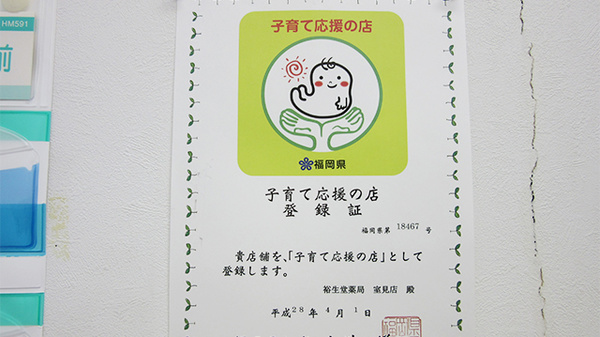 HM591
前
子育て応援の店
福岡県
子育て応援の店
登録証
福岡県第 18467 号
貴店舗を、「子育て応援の店」として
登録します。
裕生堂薬局 室見店 殿
平成28年 4月 1日
福岡県